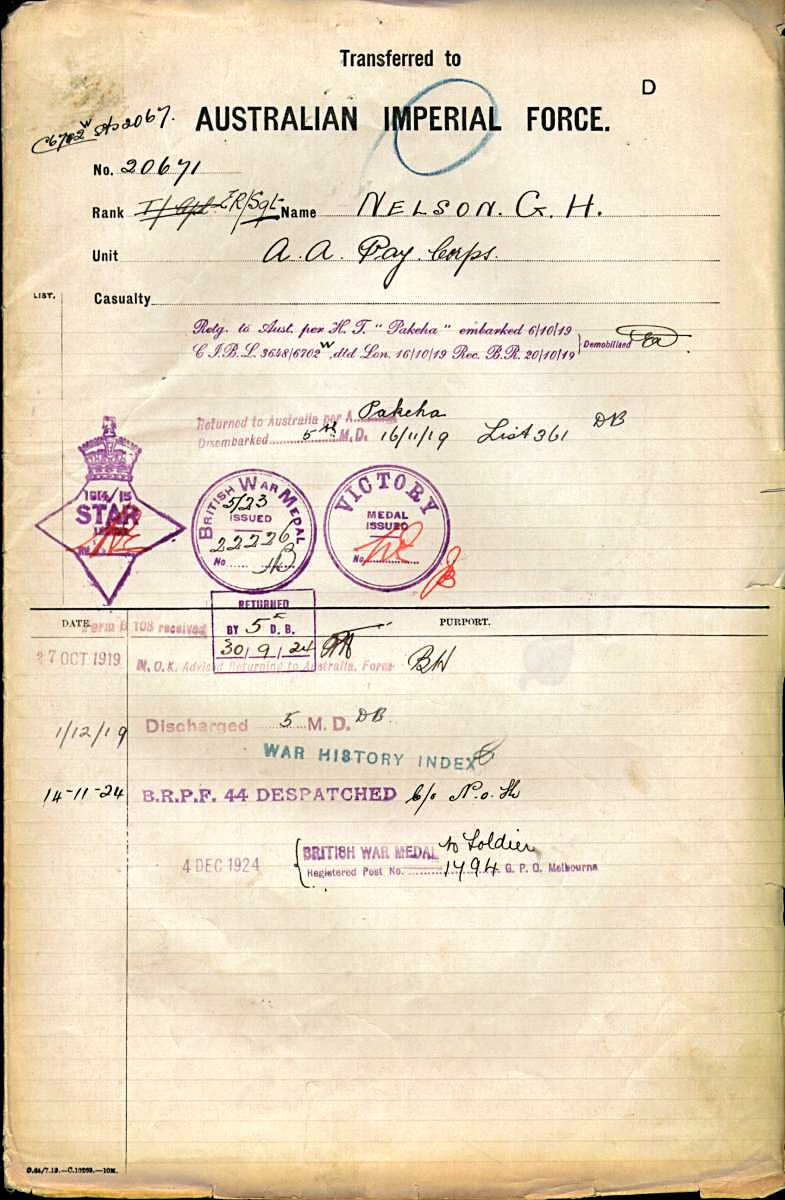 Transferred to
D
AUSTRALIAN IMPERIAL FORCE.
C6702 W 2067.
No. 20671
Rank T/Cpl. ER/Sgt Name NELSON. G. H.
Unit A. A. Pay. Corps.
LIST. Casualty
Retg. to Aust. per H. T. "Pakeha" embarked 6/10/19
C.I.B.L. 3648/6702 W, dtd Lon. 16/10/19 Rec. B.R. 20/10/19 Demobilised
Returned to Australia per A. Pakeha
Disembarked 5th M.D. 16/11/19 List 361 DB
1914/15
STAR
BRITISH WAR MEDAL
5/23
ISSUED
22226
No.
VICTORY
MEDAL
ISSUED
No.
RETURNED
DATE. Form B 103 received BY 5 D. B. PURPORT.
30/9/24
27 OCT 1919 N.O.K. Advised Returning to Australia. Form BH
1/12/19 Discharged 5 M. D. DB
WAR HISTORY INDEX
14-11-24 B.R.P.F. 44 DESPATCHED c/o N.o.
4 DEC 1924 BRITISH WAR MEDAL to Soldier
Registered Post No. 1494 G. P. O. Melbourne